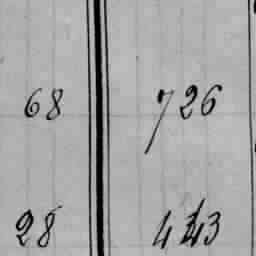 68 726
28 443